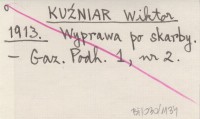 KUŹNIAR Wiktor
1913. Wyprawa po skarby.
– Gaz. Podh. 1, nr 2.